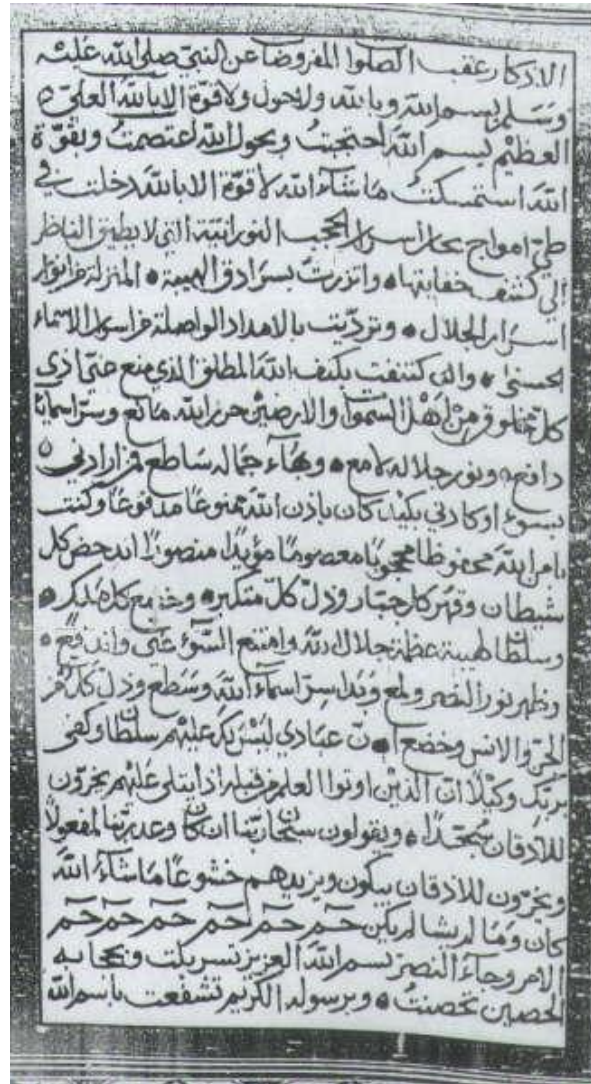 الاذكار عقب الصلوا المفروضا عن النبي صلى الله عليه
وسلم بسم الله وبالله ولاحول ولاقوة الا بالله العلي
العظيم بسم الله احتجبت وبحول الله اعتصمت وبقوة
الله استمسكت ما شاء الله لاقوة الا بالله دخلت في
طي امواج بحار اسرار الحجب النورانية التي لا يطيق الناظر
الى كشف خفاياتها واتزرت بسرادق الهيبة المنزلة من انوار
اسرار الجلال وترديت بالامداد الواصلة من اسرار الاسماء
الحسنى واكتنفت بكنف الله المطلق الذي منع حتى اذى
كل مخلوق من اهل السموا والارضين حرز الله مانع وسر اسمائه
دافع ونور جلاله لامع وبهاء جماله ساطع من ارادني
بسوء او كادني بكيد كان باذن الله ممنوعا مدفوعا وكنت
بامر الله محفوظا محجوبا معصوما مؤيدا منصورا اندحض كل
شيطان وقهر كل جبار وذل كل متكبر وخضع كل
وسلطا لهيبة عظمة جلال الله وامتنع السوء عني واندفع
وظهر نور النصر ولمع وبدا سر اسماء الله وسطع وذل كل من
الجن والانس وخضع ان عبادي ليس لك عليهم سلطان وكفى
بربك وكيلا ان الذين اوتوا العلم من قبله اذا يتلى عليهم يخرون
للاذقان سجدا ويقولون سبحان ربنا ان كان وعد ربنا لمفعولا
ويخرون للاذقان يبكون ويزيدهم خشوعا ما شاء الله
كان وما لم يشا لم يكن حم حم حم حم حم حم
الامر وجاء النصر بسم الله العزيز تسربلت وبحجابه
الحصين تحصنت وبرسوله الكريم تشفعت بانسم الله